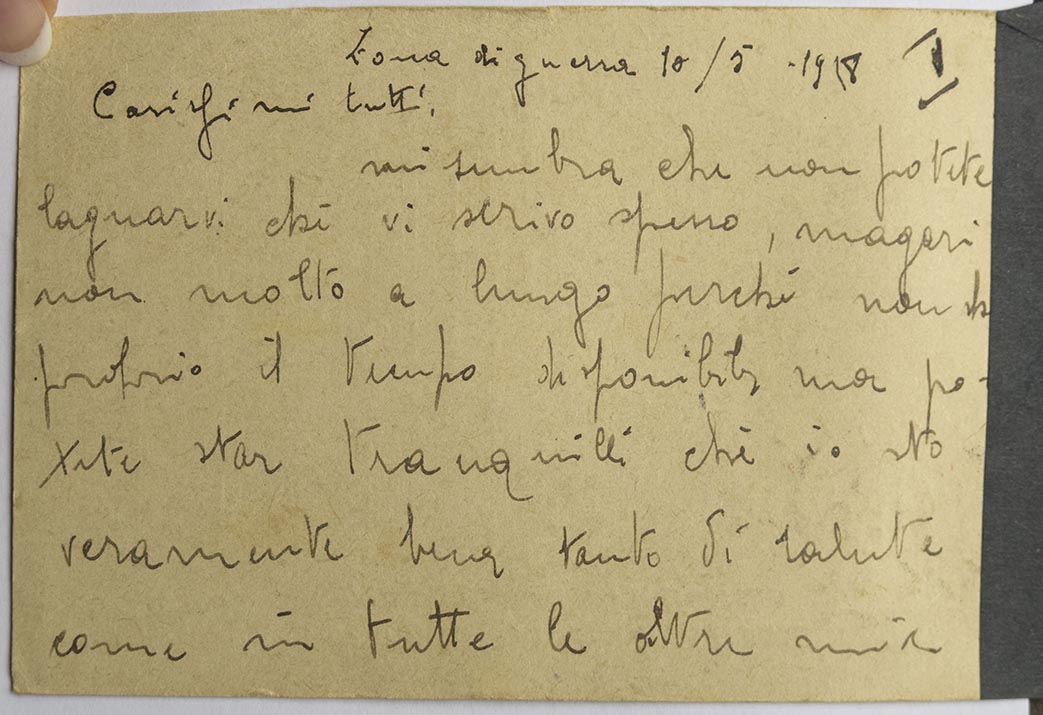 Zona di guerra 10/5 - 1918 I
Carissimi tutti,
mi sembra che non potete
lagnarvi chè vi scrivo spesso, magari
non molto a lungo perchè non ho
proprio il tempo disponibile, ma po-
tete star tranquilli chè io sto
veramente bene tanto di salute
come in tutte le altre mie